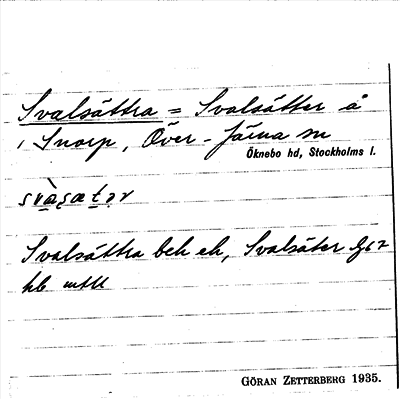 Svalsättra = Svalsätter å
Snorp, Över-Järna sn
Öknebo hd, Stockholms l.
Svalsättra beh eh, Svalsäter
GÖRAN ZETTERBERG 1935.